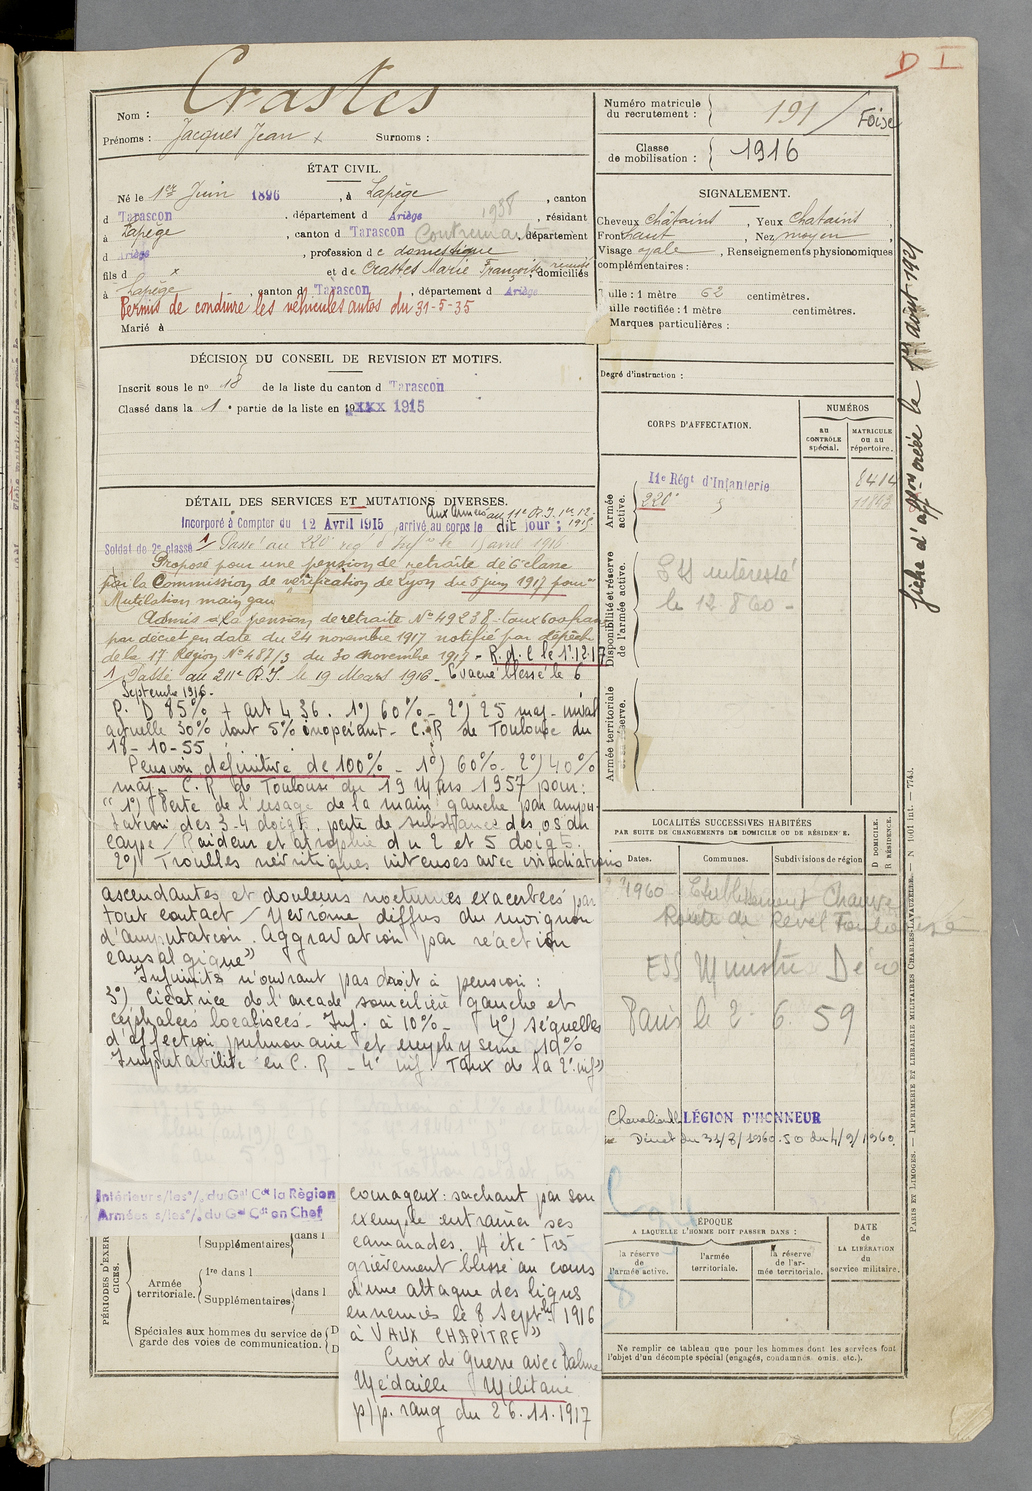 D I
Nom : Crastes
Prénoms : Jacques Jean x Surnoms :
Numéro matricule du recrutement : 191 / Foix
Classe de mobilisation : 1916
ÉTAT CIVIL.
Né le 1er Juin 1896, à Lapège, canton
d Tarascon, département d Ariège, résidant
1938
à Lapège, canton d Tarascon, département
d Ariège, profession de domestique
fils d x et de Crastes Marie Françoise, domiciliés
à Lapège, canton d Tarascon, département d Ariège
Permis de conduire les véhicules autos du 31-5-35
Marié à
SIGNALEMENT.
Cheveux châtains, Yeux chatains,
Front haut, Nez moyen,
Visage ovale, Renseignements physionomiques
complémentaires :
Taille : 1 mètre 62 centimètres.
Taille rectifiée : 1 mètre centimètres.
Marques particulières :
Degré d'instruction :
DÉCISION DU CONSEIL DE REVISION ET MOTIFS.
Inscrit sous le no 18 de la liste du canton d Tarascon
Classé dans la 1e partie de la liste en 19xxx 1915
fiche d'appr créée le 1er août 1921
CORPS D'AFFECTATION.
NUMÉROS
AU CONTRÔLE spécial.
MATRICULE OU AU répertoire.
Armée active.
11e Régt d'Infanterie 8414
220e
Disponibilité et réserve de l'armée active.
ESS intéressé
le 12.8.60 -
Armée territoriale et sa réserve.
DÉTAIL DES SERVICES ET MUTATIONS DIVERSES.
Aux Armées au 11e R.I. 1er.12.1915
Incorporé à Compter du 12 Avril 1915 arrivé au corps le dit jour ;
Soldat de 2e classe 1/ Passé au 220e rég d'Infie le 19 avril 1916
Proposé pour une pension de retraite de 6e classe
par la Commission de vérification de Lyon du 5 juin 1917 pour "
Mutilation main gau
Admis à la pension de retraite No 49238 - taux 600 francs
par décret en date du 24 novembre 1917 notifié par dépêche
de la 17 Région No 487/3 du 30 novembre 1917 - R.d.C le 1.12.17
1 Passé au 211e R.I. le 19 Mars 1916 - Evacué blessé le 6
Septembre 1916 -
P. D 85% + art 4 36. 1o) 60% - 2o) 25 maj - inval
actuelle 30% dont 5% inopérant - C.R de Toulouse du
18-10-55
Pension définitive de 100% - 1o) 60% - 2o) 40%
maj - C.R. de Toulouse du 19 Mars 1957 pour :
" 1o) Perte de l'usage de la main gauche par ampu
tation des 3-4 doigts, perte de substance des os du
carpe / Raideur et atrophie du 2 et 5 doigts.
2o) Troubles névritiques intenses avec irradiations
ascendantes et douleurs nocturnes exacerbées par
tout contact / Nevrome diffus du moignon
d'amputation. Aggravation par réaction
causalgique"
Infirmités n'ouvrant pas droit à pension :
3o) Cicatrice de l'arcade sourcilière gauche et
céphalées localisées - Inf. à 10% - 4o) séquelles
d'affection pulmonaire et emphysème 10%
Imputabilité en C.R - 4e inf. Taux de la 2e inf"
LOCALITÉS SUCCESSIVES HABITÉES
PAR SUITE DE CHANGEMENTS DE DOMICILE OU DE RÉSIDENCE.
Dates. Communes. Subdivisions de région.
D DOMICILE.
R RÉSIDENCE.
1960 Etablissement
Route de Revel Toulouse
ESS
Paris le 2. 6. 59
Chevalier de la LÉGION D'HONNEUR
Décret du 31/8/1960. JO du 4/9/1960
Intérieur s/les o/. du Gal Ct la Région
Armées s/les o/. du Gal Ct en Chef
PÉRIODES D'EXERCICES.
Supplémentaires dans l
Armée territoriale.
1re dans l
Supplémentaires dans l
Spéciales aux hommes du service de garde des voies de communication.
courageux : sachant par son
exemple entrainer ses
camarades. A été très
grièvement blessé au cours
d'une attaque des lignes
ennemies le 8 Septbre 1916
à VAUX CHAPITRE"
Croix de Guerre avec Palme
Médaille Militaire
p/p. rang du 26.11.1917
ÉPOQUE
A LAQUELLE L'HOMME DOIT PASSER DANS :
la réserve de l'armée active.
l'armée territoriale.
la réserve de l'armée territoriale.
DATE de LA LIBÉRATION du service militaire.
Ne remplir ce tableau que pour les hommes dont les services font
l'objet d'un décompte spécial (engagés, condamnés, omis, etc.).
PARIS ET LIMOGES. — IMPRIMERIE ET LIBRAIRIE MILITAIRES CHARLES-LAVAUZELLE. — N 1001 int. — 7743.